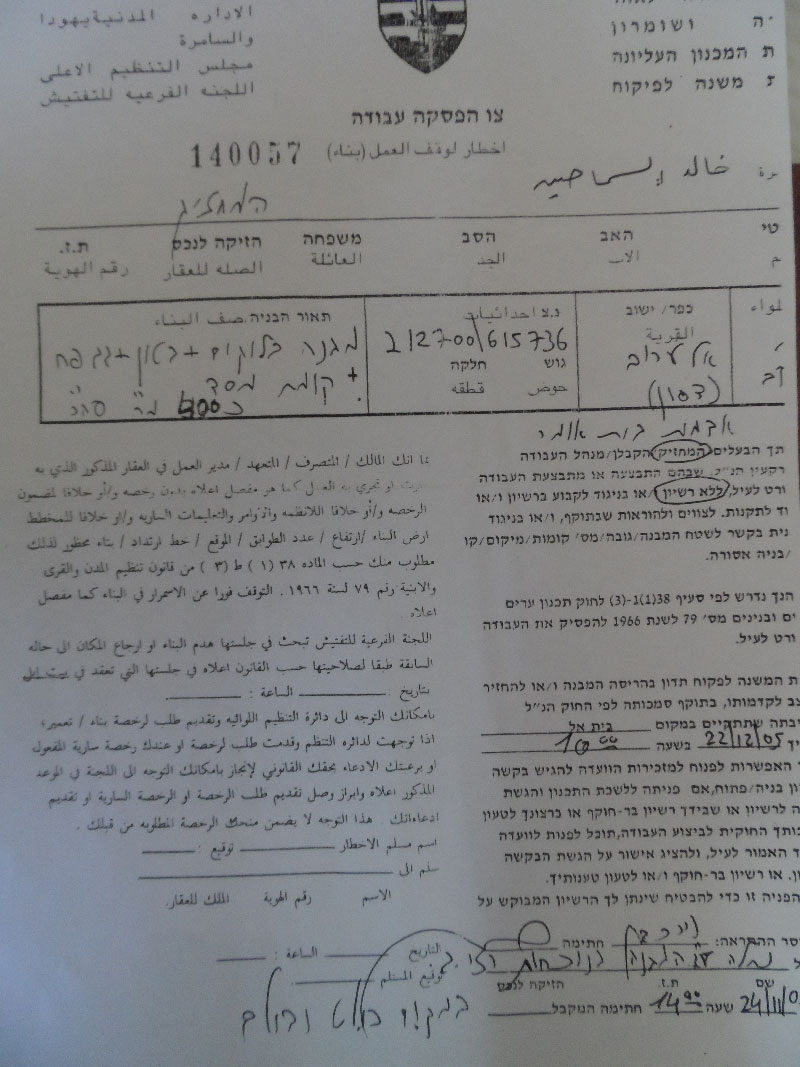 الاداره المدنية يهودا
والسامرة
مجلس التنظيم الاعلى
اللجنه الفرعيه للتفتيش
ושומרון
ת המכנון העליונה
משנה לפיקוח
צו הפסקה עבודה
اخطار لوقف العمل (بناء)
140057
خالد
המחזיק
האב הסב משפחה הזיקה לנכס ת.ז.
الاب الجد العائلة الصله للعقار رقم الهوية
כפר/ ישוב
القرية
אל ערוב
נ.צ احداثيات
212700/615736
גוש חלקה
حوض قطعه
תאור הבניה صف البناء
מבנה בלוקים + בטון + גג פח
+ קומת מסד
אדמת בית אומר
תך הבעלים/המחזיק/הקבלן/מנהל העבודה
רקעין הנ"ל, שבהם התבצעה או מתבצעת העבודה
ורט לעיל, ללא רשיון/או בניגוד לקבוע ברשיון ו/או
וד לתקנות. לצווים ולהוראות שבתוקף, ו/או בניגוד
נית בקשר לשטח המבנה/גובה/מס' קומות/מיקום/קו
/בניה אסורה.
הנך נדרש לפי סעיף 38(1)(3)-1 לחוק תכנון ערים
ם ובנינים מס' 79 לשנת 1966 להפסיק את העבודה
ורט לעיל.
ת המשנה לפקוח תדון בהריסה המבנה ו/או להחזיר
צב לקדמותו, בתוקף סמכותה לפי החוק הנ"ל
יבתה שתתקיים במקום בית אל
יך 22/12/05 בשעה 10 00
ך האפשרות לפנות למזכירות הוועדה להגיש בקשה
ון בניה/פתוח, אם פניתה ללשכת התכנון והגשת
ה לרשיון או שבידך רשיון בר-חוקף או ברצונך לטעון
כותך החוקית לביצוע העבודה, תוכל לפנות לוועדה
ד האמור לעיל, ולהציג אישור על הגשת הבקשה
ון. או רשיון בר-חוקף ו/או לטעון טענותיך.
הפניה זו כדי להבטיח שינתן לך הרשיון המבוקש על
بما انك المالك / المتصرف / المتعهد / مدير العمل في العقار المذكور الذي به
جرت او تجري به العمل كما هو مفصل اعلاه بدون رخصه و/أو خلافا لمضمون
الرخصه و/أو خلافا للانظمه واوامر والتعليمات الساريه و/او خلافا للمخطط
ارض البناء /ارتفاع / عدد الطوابق / الموقع / خط ارتداد / بناء محظور لذلك
مطلوب منك حسب الماده ٣٨ (١) ط (٣) من قانون تنظيم المدن والقرى
والابنية رقم ٧٩ لسنة ١٩٦٦ . التوقف فورا عن الاسمرار في البناء كما مفصل
اعلاه
اللجنة الفرعية للتفتيش تبحث في جلستها هدم البناء او ارجاع المكان الى حاله
السابقة طبقا لصلاحيتها حسب القانون اعلاه في جلستها التي تعقد في بيت ايل
بتاريخ : ________ الساعة : ________
بامكانك التوجه الى دائرة التنظيم اللوائيه وتقديم طلب لرخصة بناء / تعمير؛
اذا توجهت لدائره التنظم وقدمت طلب لرخصة او عندك رخصة سارية المفعول
او برغبتك الادعاء بحقك القانوني لإنجاز بامكانك التوجه الى اللجنة في الموعد
المذكور اعلاه وابراز وصل تقديم طلب الرخصة او الرخصة السارية او تقديم
ادعاءاتك . هذا التوجه لا يضمن منحك الرخصة المطلوبه من قبلك .
اسم مسلم الاخطار ________ توقيع : ________
سلم الى ________
الاسم رقم الهوية الملك للعقار.
التاريخ ________ الساعة : ________
توقيع المستلم ________
סר ההתראה: חתימה
שם ת.ז. הזיקה לנכס
24/11/0 שעה 14 00 חתימה המקבל